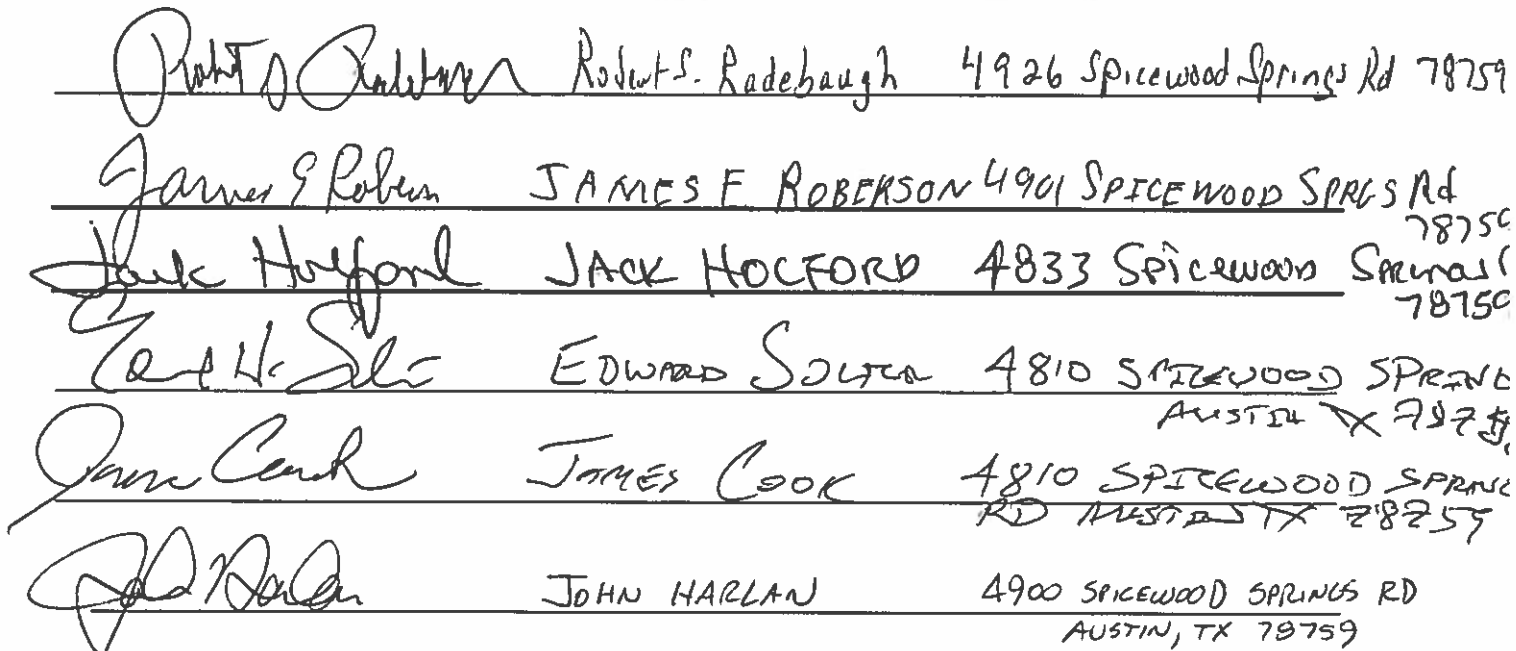 Robert S. Radebaugh 4926 Spicewood Springs Rd 78759
James E Roberson JAMES E ROBERSON 4901 SPICEWOOD SPRGS Rd
78759
Jack Holford JACK HOLFORD 4833 SPICEWOOD SPRINGS
78759
EDWARD SOLTER 4810 SPICEWOOD SPRING
AUSTIN TX 787
James Cook JAMES COOK 4810 SPICEWOOD SPRING
RD AUSTIN TX 78759
John Harlan JOHN HARLAN 4900 SPICEWOOD SPRINGS RD
AUSTIN, TX 78759